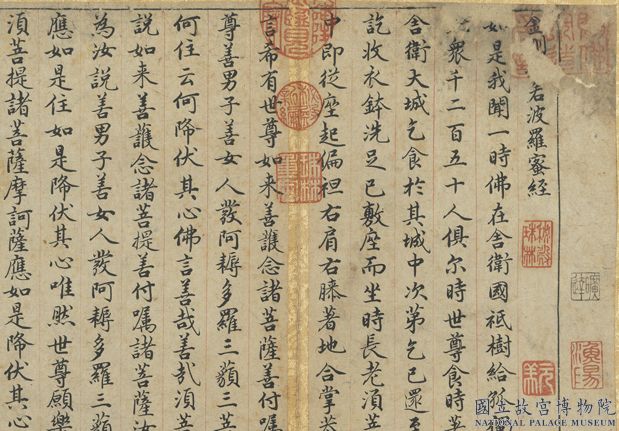 金若波羅蜜經
如是我聞一時佛在舍衛國祇樹給
眾千二百五十人俱尒時世尊食時
舍衛大城乞食於其城中次第乞已還至
訖收衣鉢洗足已敷座而坐時長老須菩
中即從座起偏袒右肩右膝著地合掌
言希有世尊如來善護念諸菩薩善付囑
尊善男子善女人發阿耨多羅三藐三菩
何住云何降伏其心佛言善哉善哉須菩
說如來善護念諸菩提善付囑諸菩薩汝
為汝說善男子善女人發阿耨多羅三藐
應如是住如是降伏其心唯然世尊願樂
須菩提諸菩薩摩訶薩應如是降伏其心
國立故宮博物院
NATIONAL PALACE MUSEUM